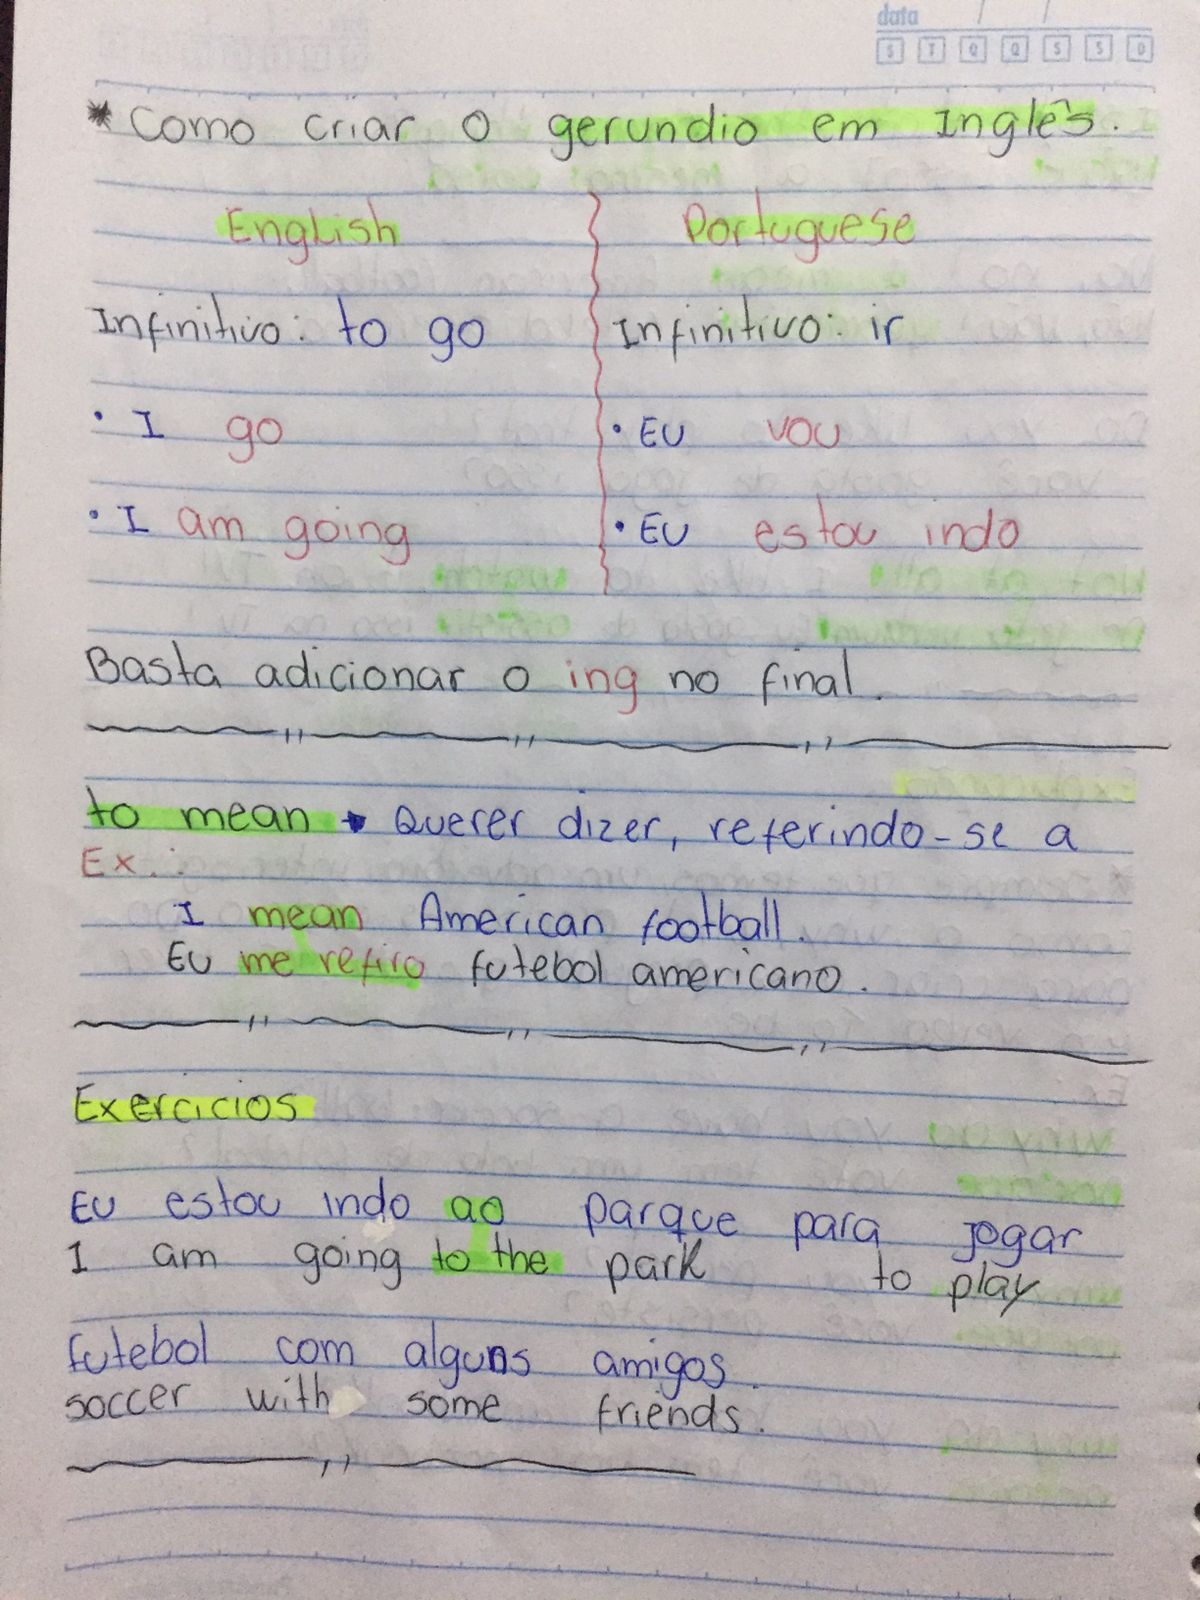 data / /
S T Q Q S S D
* Como criar o gerundio em Inglês.
English Portuguese
Infinitivo: to go Infinitivo: ir
• I go • Eu vou
• I am going • Eu estou indo
Basta adicionar o ing no final.
to mean → Querer dizer, referindo-se a
Ex.:
I mean American football.
Eu me refiro futebol americano.
Exercicios
Eu estou indo ao parque para jogar
I am going to the park to play
futebol com alguns amigos.
soccer with some friends.